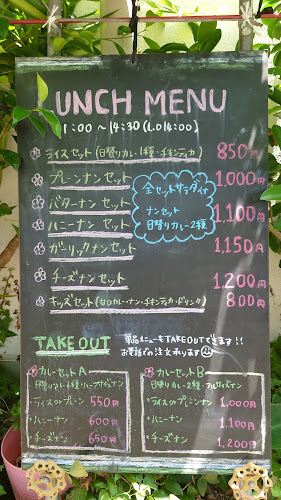 UNCH MENU
1:00～14:30(L.O14:00)
ライスセット(日替りカレー1種・チキンティカ) 850円
プレーンナンセット 1,000円
バターナンセット
ハニーナンセット 1,100円
ガーリックナンセット 1,150円
チーズナンセット 1,200円
キッズセット(甘口カレー・ナン・チキンティカ・ドリンク) 800円
全セットサラダ付
ナンセット
日替りカレー2種
TAKE OUT
単品メニューもTAKEOUTできます!!
お電話でのご注文承ります
カレーセットA
日替りカレー1種・ハーフサイズナン
ライスorプレーン 550円
・ハニーナン 600円
・チーズナン 650円
カレーセットB
日替りカレー2種・フルサイズナン
・ライスorプレーンナン 1,000円
・ハニーナン 1,100円
・チーズナン 1,200円